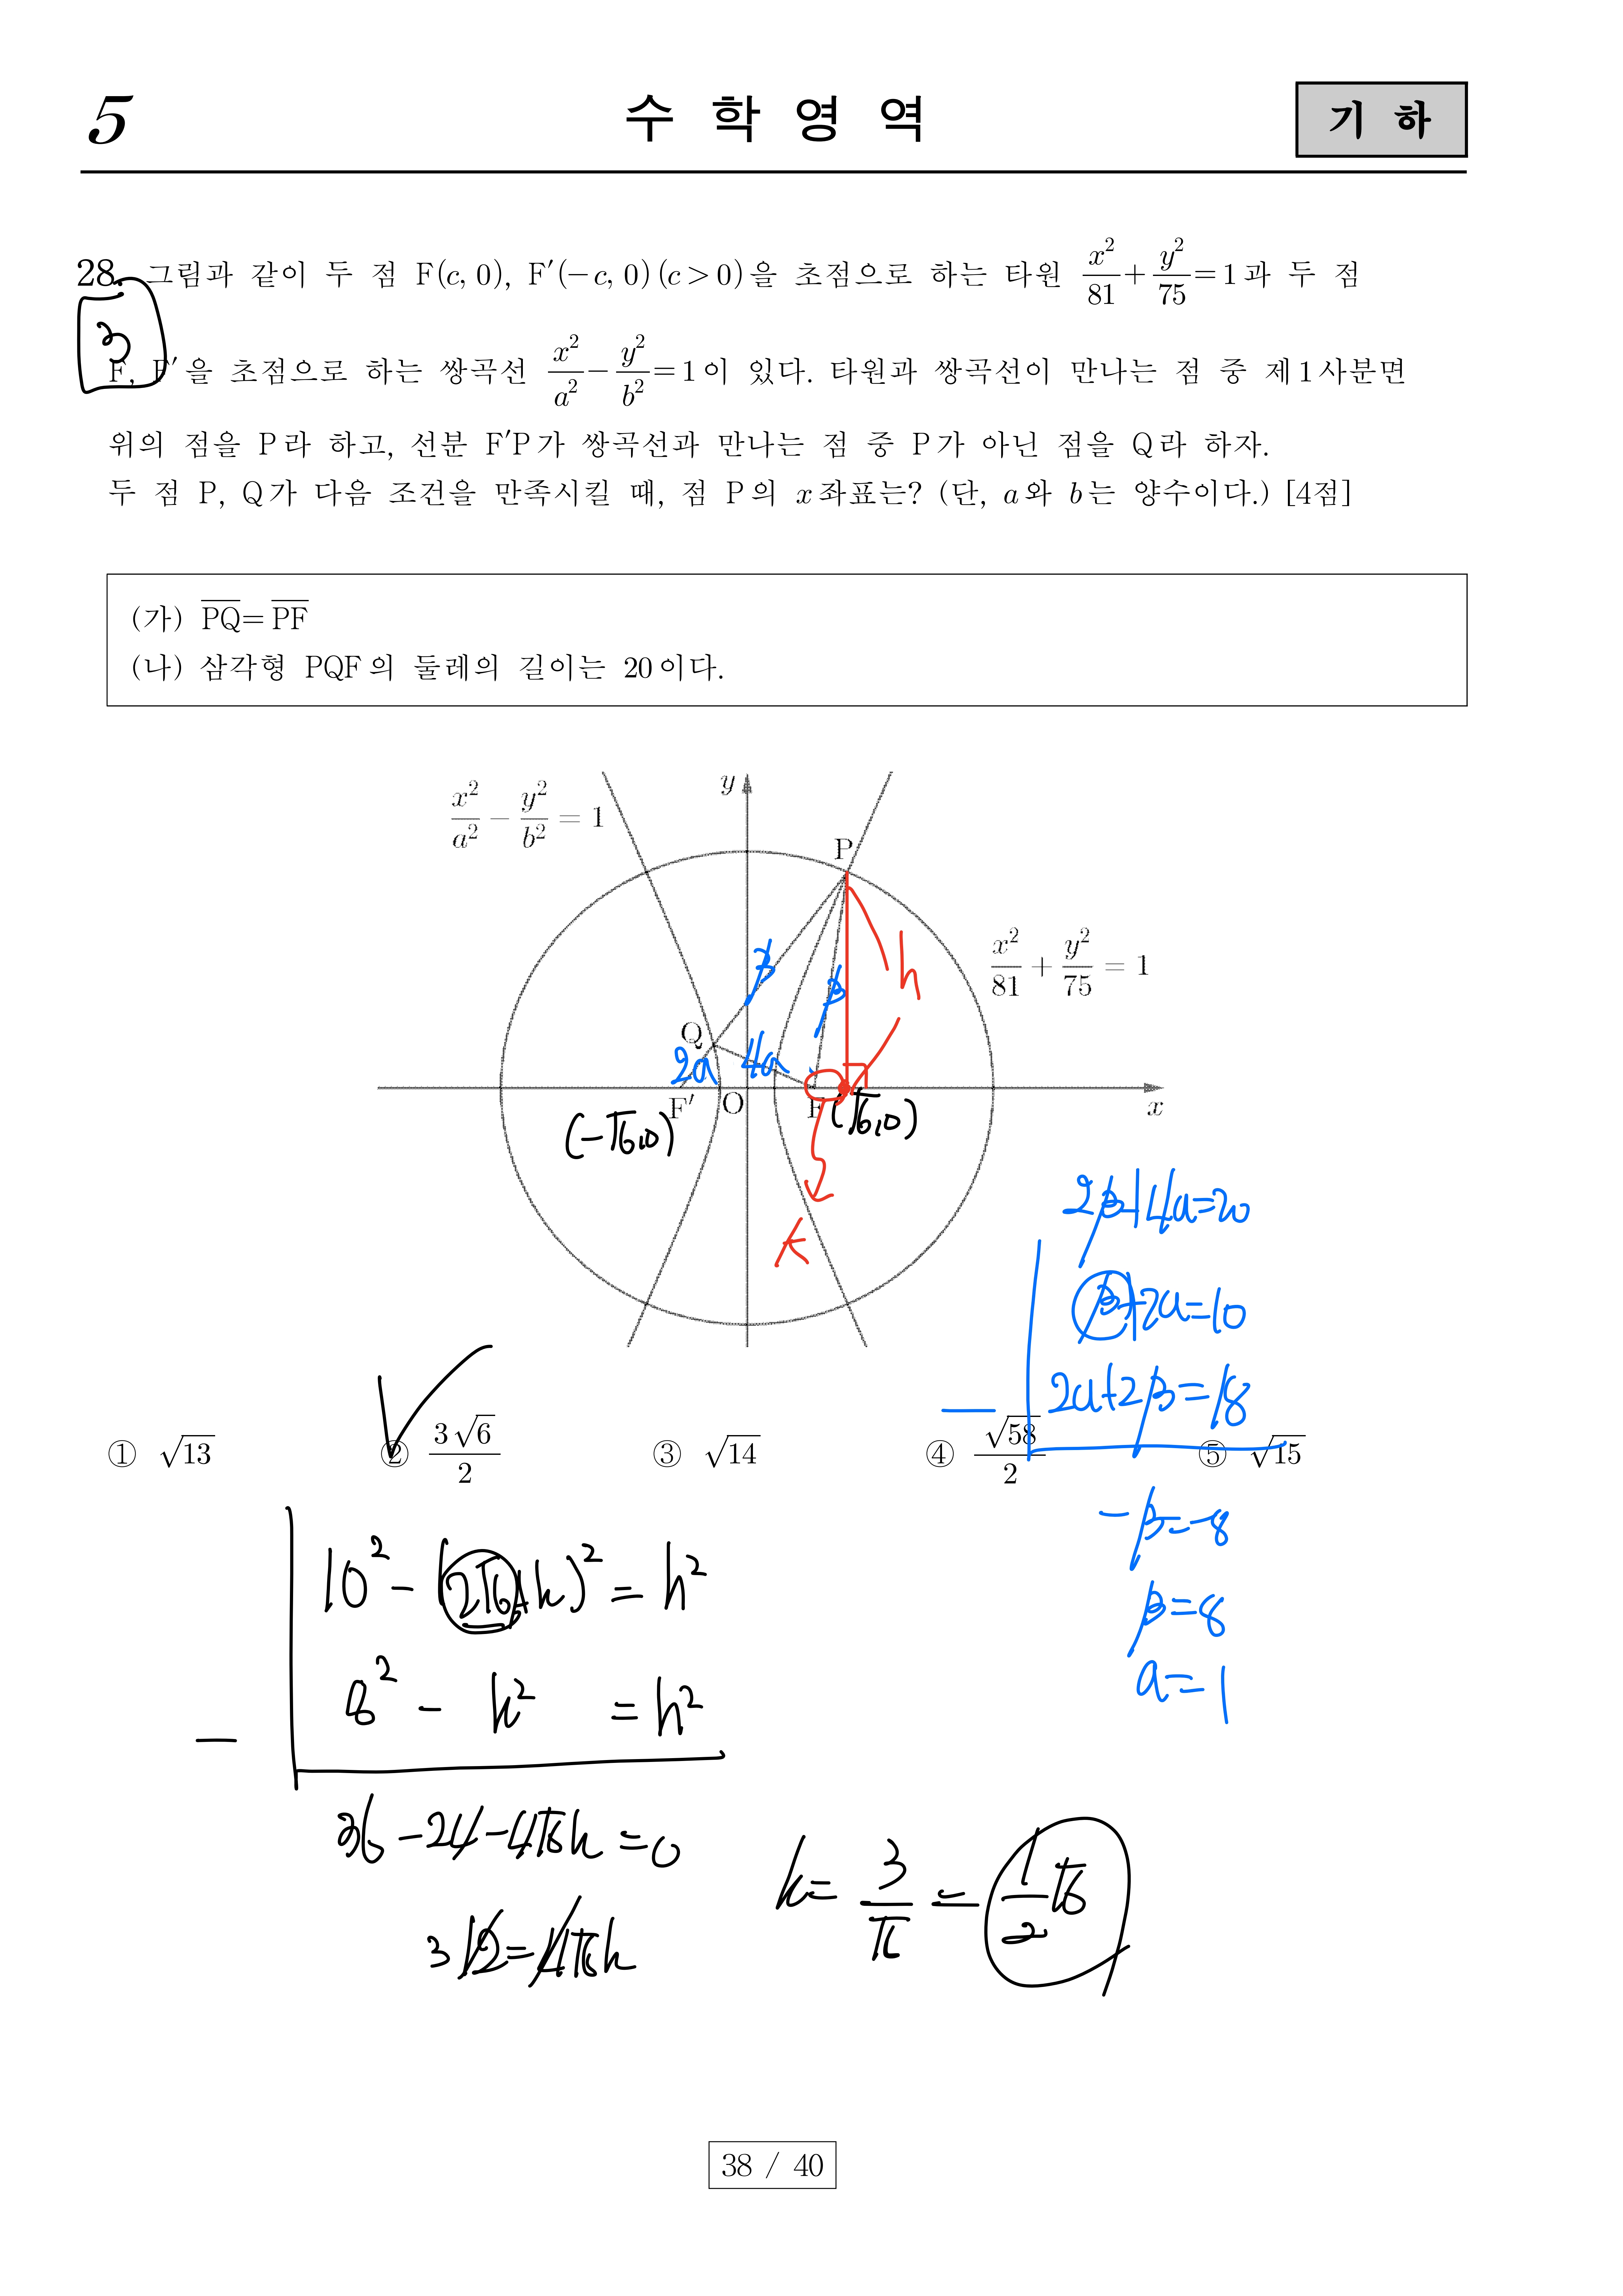 5 수 학 영 역 기 하
28. 그림과 같이 두 점 F(c, 0), F′(−c, 0) (c > 0)을 초점으로 하는 타원 x²/81 + y²/75 = 1과 두 점
3
F, F′을 초점으로 하는 쌍곡선 x²/a² − y²/b² = 1이 있다. 타원과 쌍곡선이 만나는 점 중 제1사분면
위의 점을 P라 하고, 선분 F′P가 쌍곡선과 만나는 점 중 P가 아닌 점을 Q라 하자.
두 점 P, Q가 다음 조건을 만족시킬 때, 점 P의 x좌표는? (단, a와 b는 양수이다.) [4점]
(가) PQ = PF
(나) 삼각형 PQF의 둘레의 길이는 20이다.
x²/a² − y²/b² = 1
y
P
x²/81 + y²/75 = 1
β
β
h
Q
2a
4a
F′
O
F
x
(−√6,0)
(√6,0)
k
2β+4a=20
β+2a=10
2a+2β=18
−β=−8
β=8
a=1
① √13
② 3√6/2
③ √14
④ √58/2
⑤ √15
10² − (2√6+k)² = h²
8² − k² = h²
36 − 24 − 4√6k = 0
3 12 = 4√6k
k = 3/√6 = 1/2 √6
38 / 40